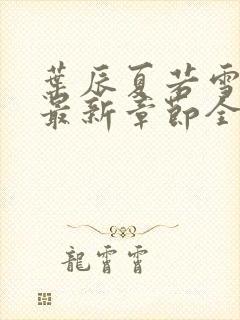 葉辰夏若雪
最新章節全
龍霄霄